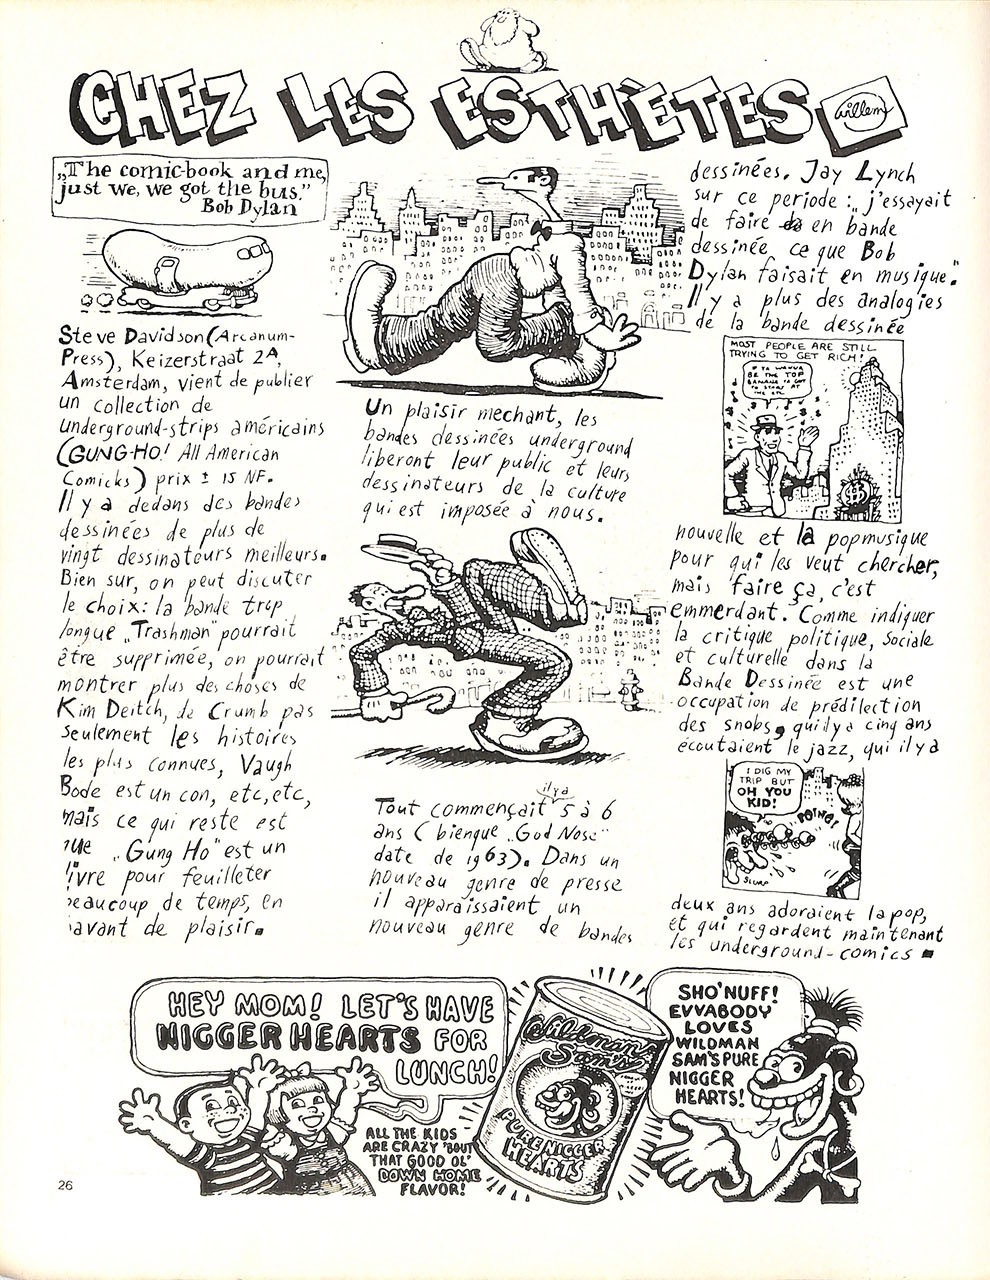 CHEZ LES ESTHÈTES
willem
„The comic-book and me,
just we, we got the bus."
Bob Dylan
Steve Davidson (Arcanum-
Press), Keizerstraat 2A,
Amsterdam, vient de publier
un collection de
underground-strips américains
(GUNG-HO! All American
Comicks) prix ± 15 NF.
Il y a dedans des bandes
dessinées de plus de
vingt dessinateurs meilleurs.
Bien sur, on peut discuter
le choix: la bande trop
longue „Trashman" pourrait
être supprimée, on pourrait
montrer plus des choses de
Kim Deitch, de Crumb pas
seulement les histoires
les plus connues, Vaugh
Bode est un con, etc, etc,
mais ce qui reste est
que „Gung Ho" est un
livre pour feuilleter
beaucoup de temps, en
avant de plaisir.
Un plaisir mechant, les
bandes dessinées underground
liberont leur public et leurs
dessinateurs de la culture
qui est imposée à nous.
Tout commençait il y a 5 à 6
ans (bienque „God Nose"
date de 1963). Dans un
nouveau genre de presse
il apparaissaient un
nouveau genre de bandes
dessinées. Jay Lynch
sur ce periode: „j'essayait
de faire en bande
dessinée ce que Bob
Dylan faisait en musique."
Il y a plus des analogies
de la bande dessinée
MOST PEOPLE ARE STILL
TRYING TO GET RICH!
BE THE TOP
nouvelle et la popmusique
pour qui les veut chercher,
mais faire ça, c'est
emmerdant. Comme indiquer
la critique politique, sociale
et culturelle dans la
Bande Dessinée est une
occupation de prédilection
des snobs, qui il y a cinq ans
ecoutaient le jazz, qui il y a
I DIG MY
TRIP BUT
OH YOU
KID!
POING!
SLURP
deux ans adoraient la pop,
et qui regardent maintenant
les underground-comics
HEY MOM! LET'S HAVE
NIGGER HEARTS FOR
LUNCH!
ALL THE KIDS
ARE CRAZY 'BOUT
THAT GOOD OL'
DOWN HOME
FLAVOR!
Wildman
Sam's
PURE NIGGER
HEARTS
SHO'NUFF!
EVVABODY
LOVES
WILDMAN
SAM'S PURE
NIGGER
HEARTS!
26